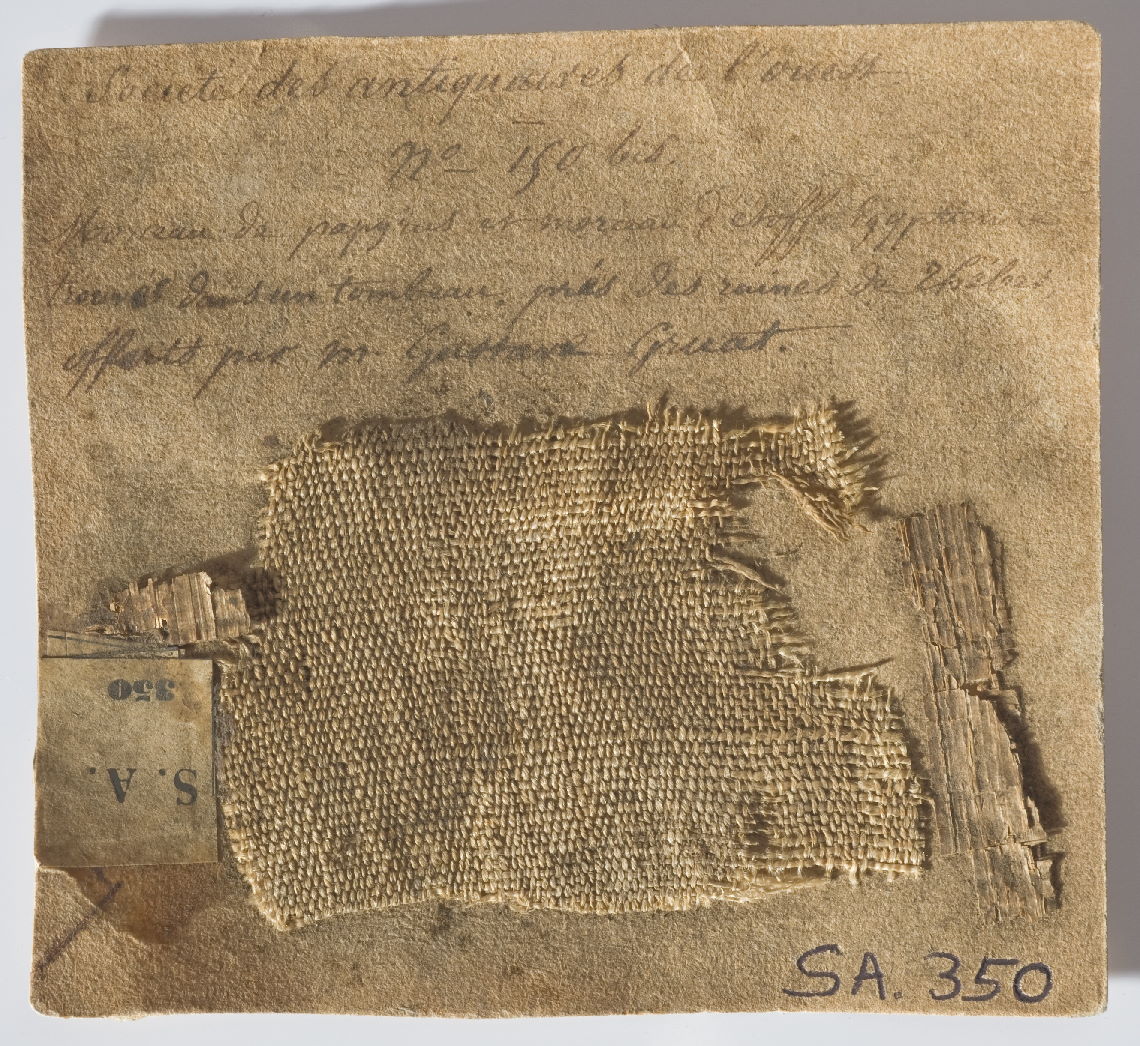 Société des antiquaires de l'ouest
Nº 150 bis.
Morceau de papyrus et morceau d'étoffe Egyptienne
trouvés dans un tombeau, près des ruines de Thèbes
offerts par M. Gustave
350
S. A.
SA. 350